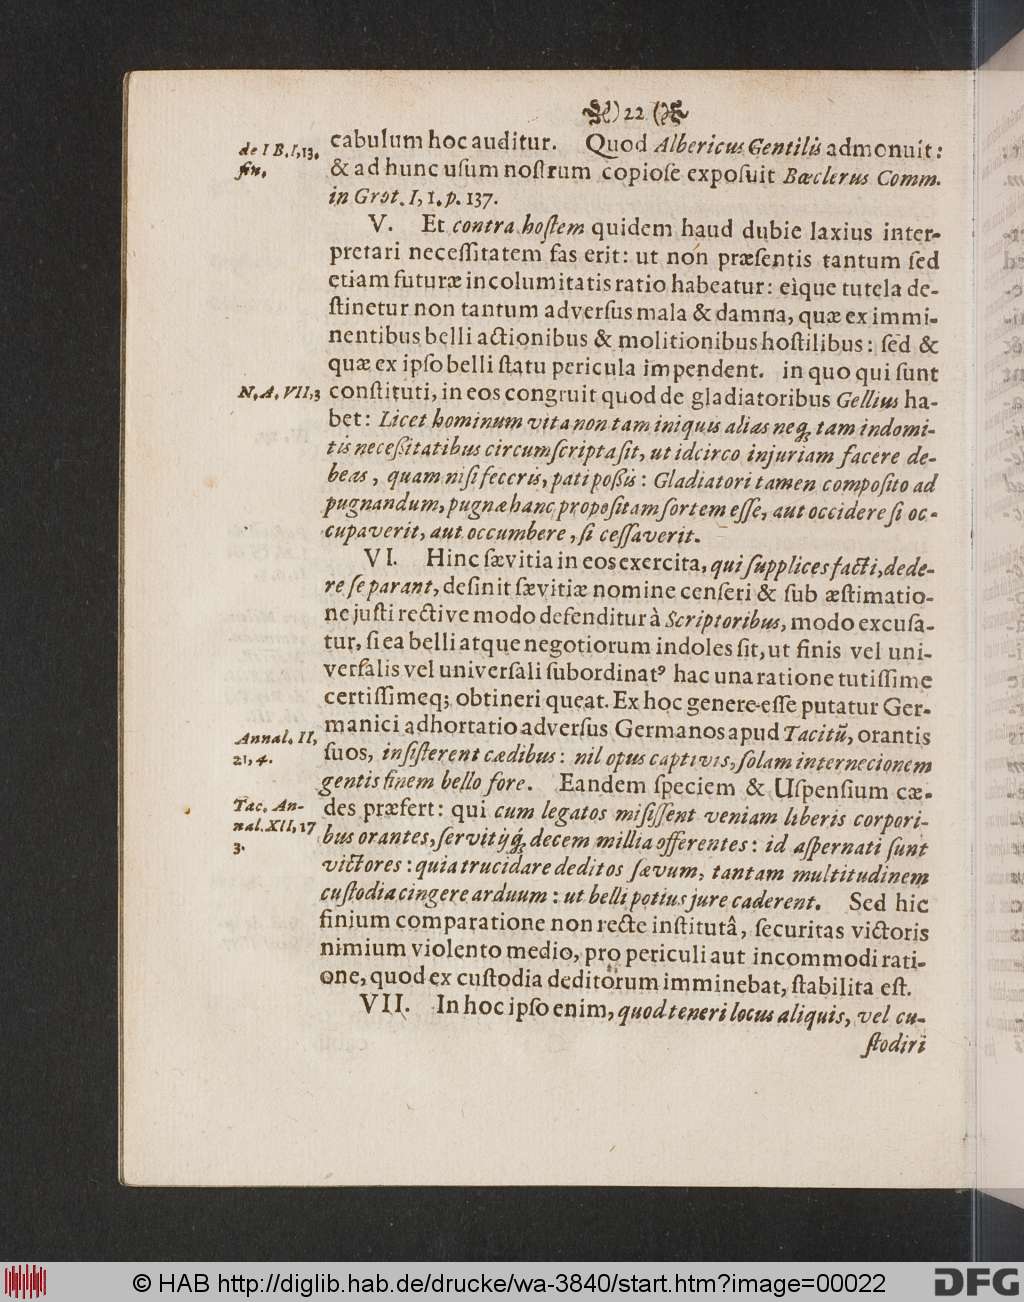 )22(
de I B. I, 13.
fin.
cabulum hoc auditur. Quod Albericus Gentilis admonuit:
& ad hunc uſum noſtrum copioſe expoſuit Bœclerus Comm.
in Grot. I, 1. p. 137.
V. Et contra hoſtem quidem haud dubie laxius inter-
pretari neceſſitatem fas erit: ut non præſentis tantum ſed
etiam futuræ incolumitatis ratio habeatur: eique tutela de-
ſtinetur non tantum adverſus mala & damna, quæ ex immi-
nentibus belli actionibus & molitionibus hoſtilibus: ſed &
quæ ex ipſo belli ſtatu pericula impendent. in quo qui ſunt
N. A. VII, 3
conſtituti, in eos congruit quod de gladiatoribus Gellius ha-
bet: Licet hominum vita non tam iniquis alias neq; tam indomi-
tis neceſſitatibus circumſcripta ſit, ut idcirco injuriam facere de-
beas, quam niſi feceris, pati poſſis: Gladiatori tamen compoſito ad
pugnandum, pugnæ hanc propoſitam ſortem eſſe, aut occidere ſi oc-
cupaverit, aut occumbere, ſi ceſſaverit.
VI. Hinc ſævitia in eos exercita, qui ſupplices facti, dede-
re ſe parant, deſinit ſævitiæ nomine cenſeri & ſub æſtimatio-
ne juſti rective modo defenditur à Scriptoribus, modo excuſa-
tur, ſi ea belli atque negotiorum indoles ſit, ut finis vel uni-
verſalis vel univerſali ſubordinatꝰ hac una ratione tutiſſime
certiſſimeq; obtineri queat. Ex hoc genere eſſe putatur Ger-
manici adhortatio adverſus Germanos apud Tacitũ, orantis
Annal. II,
21, 4.
ſuos, inſiſterent cædibus: nil opus captivis, ſolam internecionem
gentis finem bello fore. Eandem ſpeciem & Uſpenſium cæ-
Tac. An-
nal. XII, 17
3.
des præfert: qui cum legatos miſiſſent veniam liberis corpori-
bus orantes, ſervitijq́; decem millia offerentes: id aſpernati ſunt
victores: quia trucidare deditos ſævum, tantam multitudinem
cuſtodia cingere arduum: ut belli potius jure caderent. Sed hic
finium comparatione non recte inſtitutâ, ſecuritas victoris
nimium violento medio, pro periculi aut incommodi rati-
one, quod ex cuſtodia deditorum imminebat, ſtabilita eſt.
VII. In hoc ipſo enim, quod teneri locus aliquis, vel cu-
ſtodiri
© HAB http://diglib.hab.de/drucke/wa-3840/start.htm?image=00022
DFG